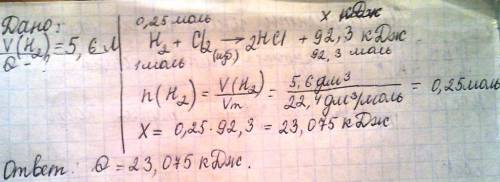 Дано:
V(H₂)=5,6 л
Q -
0,25 моль x кДж
H₂ + Cl₂ → 2HCl + 92,3 кДж.
1 моль (изб) 92,3 моль
n(H₂) = V(H₂)/Vm = 5,6 дм³/22,4 дм³/моль = 0,25 моль
X = 0,25 · 92,3 = 23,075 кДж
Ответ: Q = 23,075 кДж.